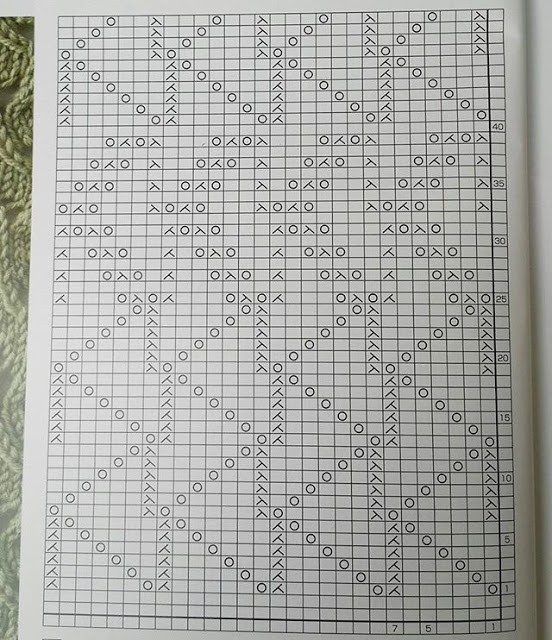 40
35
30
25
20
15
10
5
1
7 5 1